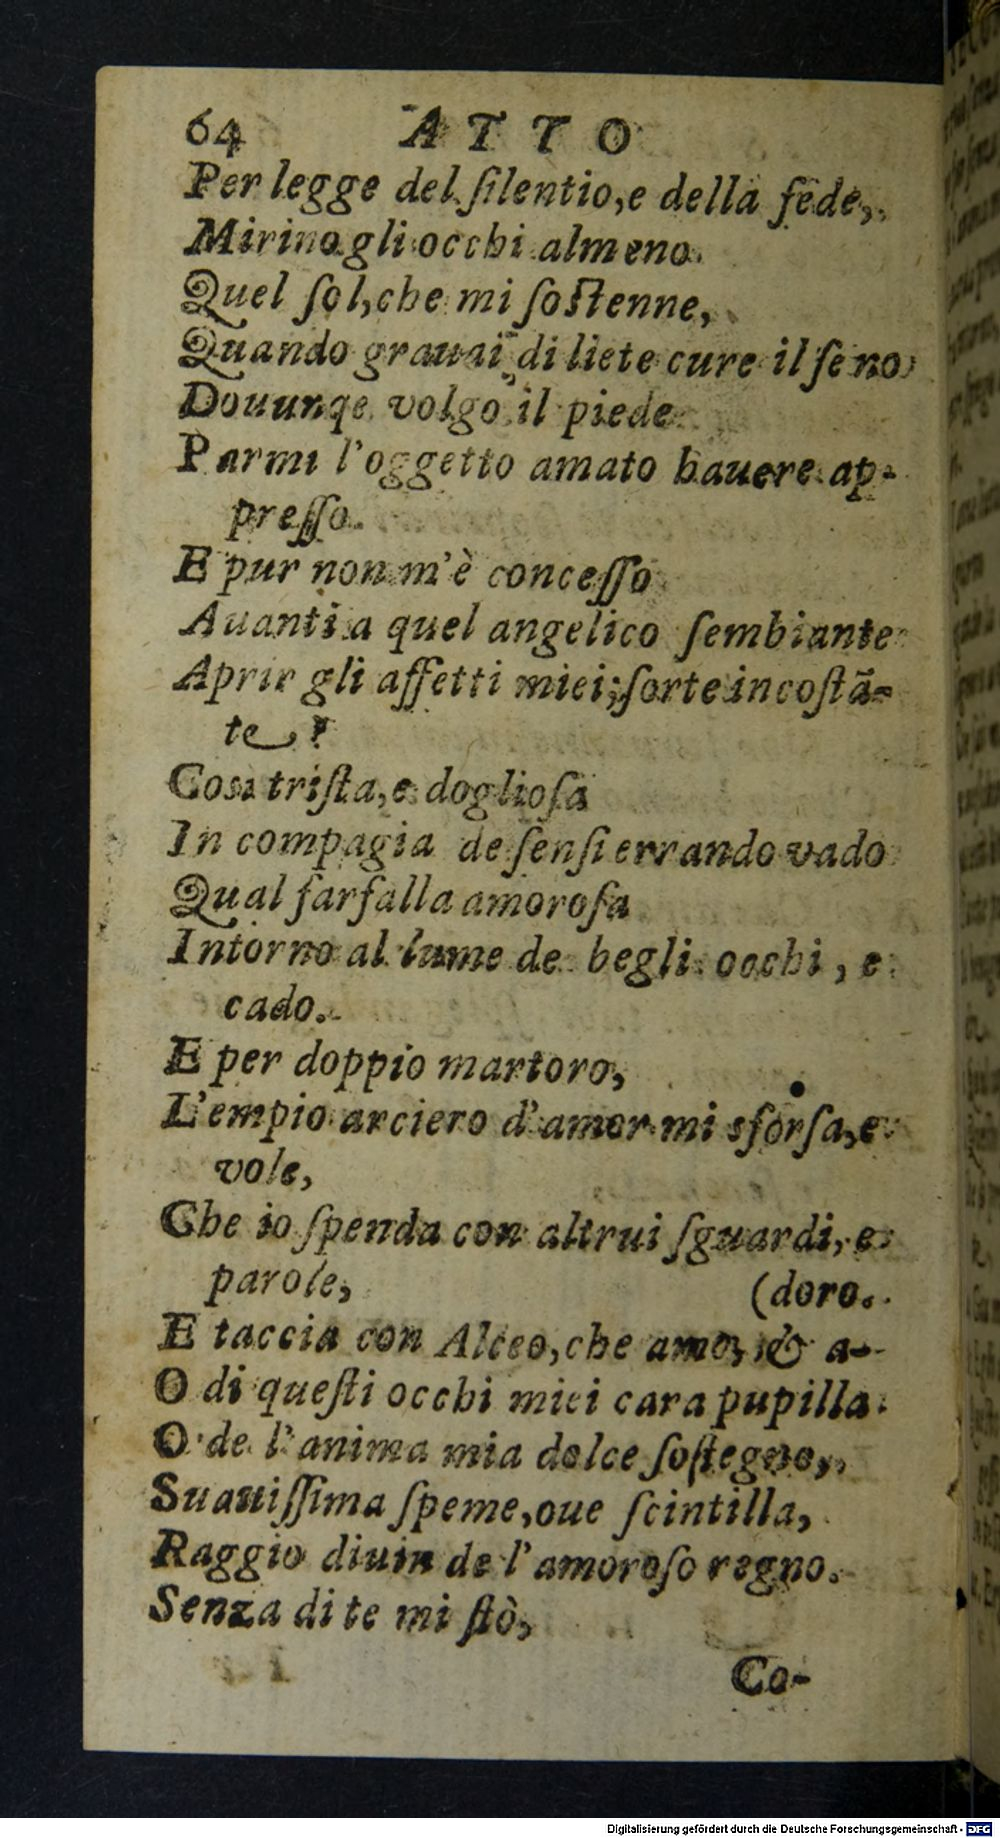 64 ATTO
Per legge del ſilentio, e della fede,
Mirino gli occhi almeno
Quel ſol, che mi ſoſtenne,
Quando grauai di liete cure il ſeno
Douunqe volgo il piede
Parmi l'oggetto amato hauere ap-
preſſo.
E pur non m'è conceſſo
Auanti a quel angelico ſembiante
Aprir gli affetti miei; ſorte incoſtã-
te!
Cosi triſta, e doglioſa
In compagia de ſenſi errando vado
Qual farfalla amoroſa
Intorno al lume de begli occhi, e
cado.
E per doppio martoro,
L'empio arciero d'amor mi sforſa, e
vole,
Che io ſpenda con altrui ſguardi, e
parole, (doro.
E taccia con Alceo, che amo, & a-
O di queſti occhi miei cara pupilla.
O de l'anima mia dolce ſoſtegno,
Suauiſſima ſpeme, oue ſcintilla,
Raggio diuin de l'amoroſo regno.
Senza di te mi ſtò,
Co-
Digitalisierung gefördert durch die Deutsche Forschungsgemeinschaft - DFG